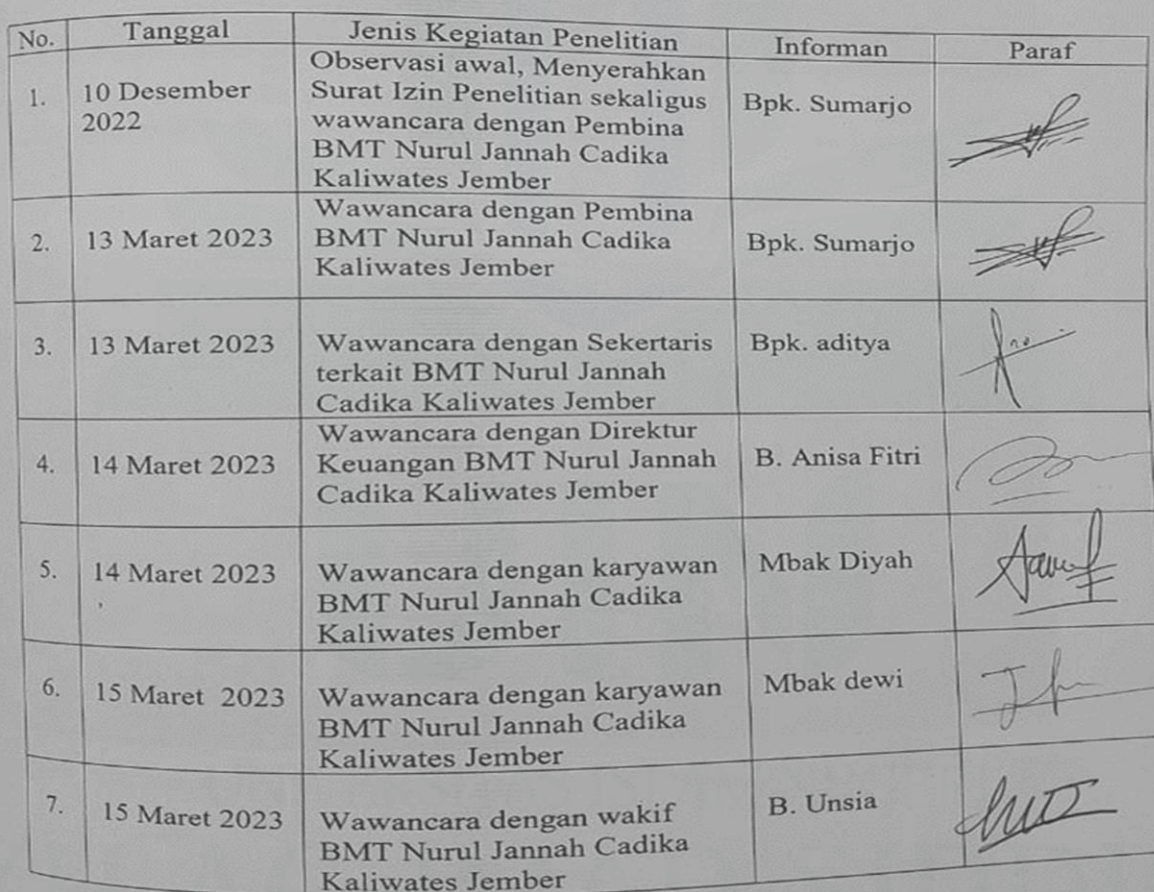 No. Tanggal Jenis Kegiatan Penelitian Informan Paraf
1. 10 Desember 2022 Observasi awal, Menyerahkan
Surat Izin Penelitian sekaligus
wawancara dengan Pembina
BMT Nurul Jannah Cadika
Kaliwates Jember
Bpk. Sumarjo
2. 13 Maret 2023 Wawancara dengan Pembina
BMT Nurul Jannah Cadika
Kaliwates Jember
Bpk. Sumarjo
3. 13 Maret 2023 Wawancara dengan Sekertaris
terkait BMT Nurul Jannah
Cadika Kaliwates Jember
Bpk. aditya
4. 14 Maret 2023 Wawancara dengan Direktur
Keuangan BMT Nurul Jannah
Cadika Kaliwates Jember
B. Anisa Fitri
5. 14 Maret 2023 Wawancara dengan karyawan
BMT Nurul Jannah Cadika
Kaliwates Jember
Mbak Diyah
6. 15 Maret 2023 Wawancara dengan karyawan
BMT Nurul Jannah Cadika
Kaliwates Jember
Mbak dewi
7. 15 Maret 2023 Wawancara dengan wakif
BMT Nurul Jannah Cadika
Kaliwates Jember
B. Unsia